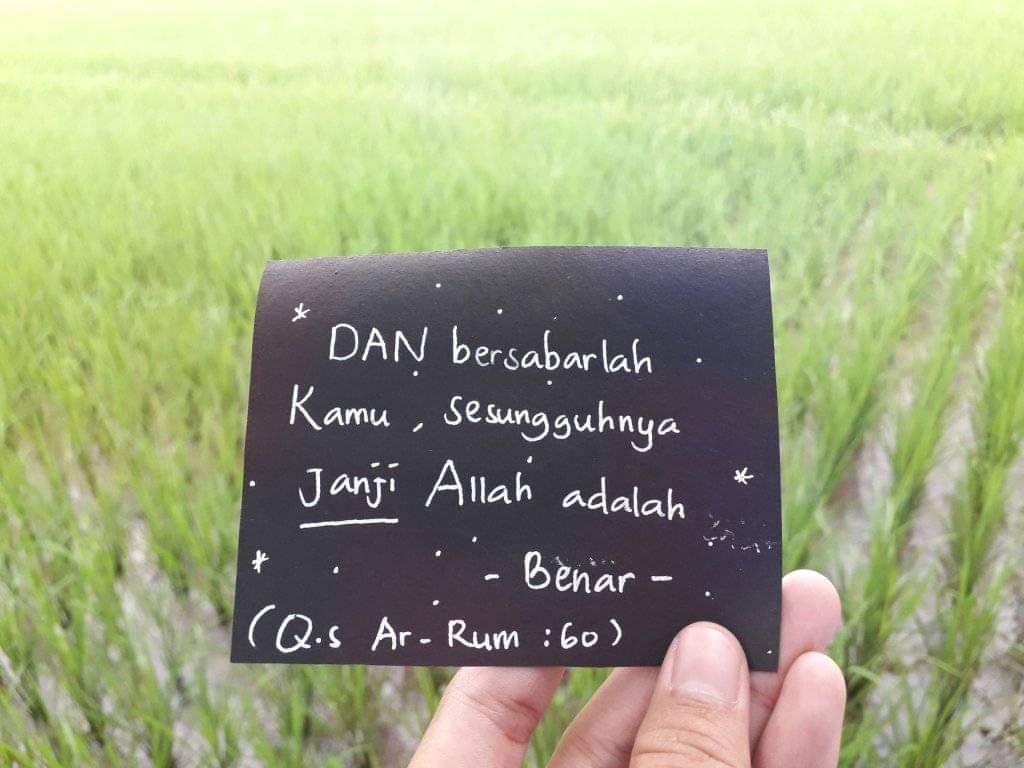 DAN bersabarlah
Kamu, sesungguhnya
Janji Allah adalah
- Benar -
(Q.s Ar-Rum :60)